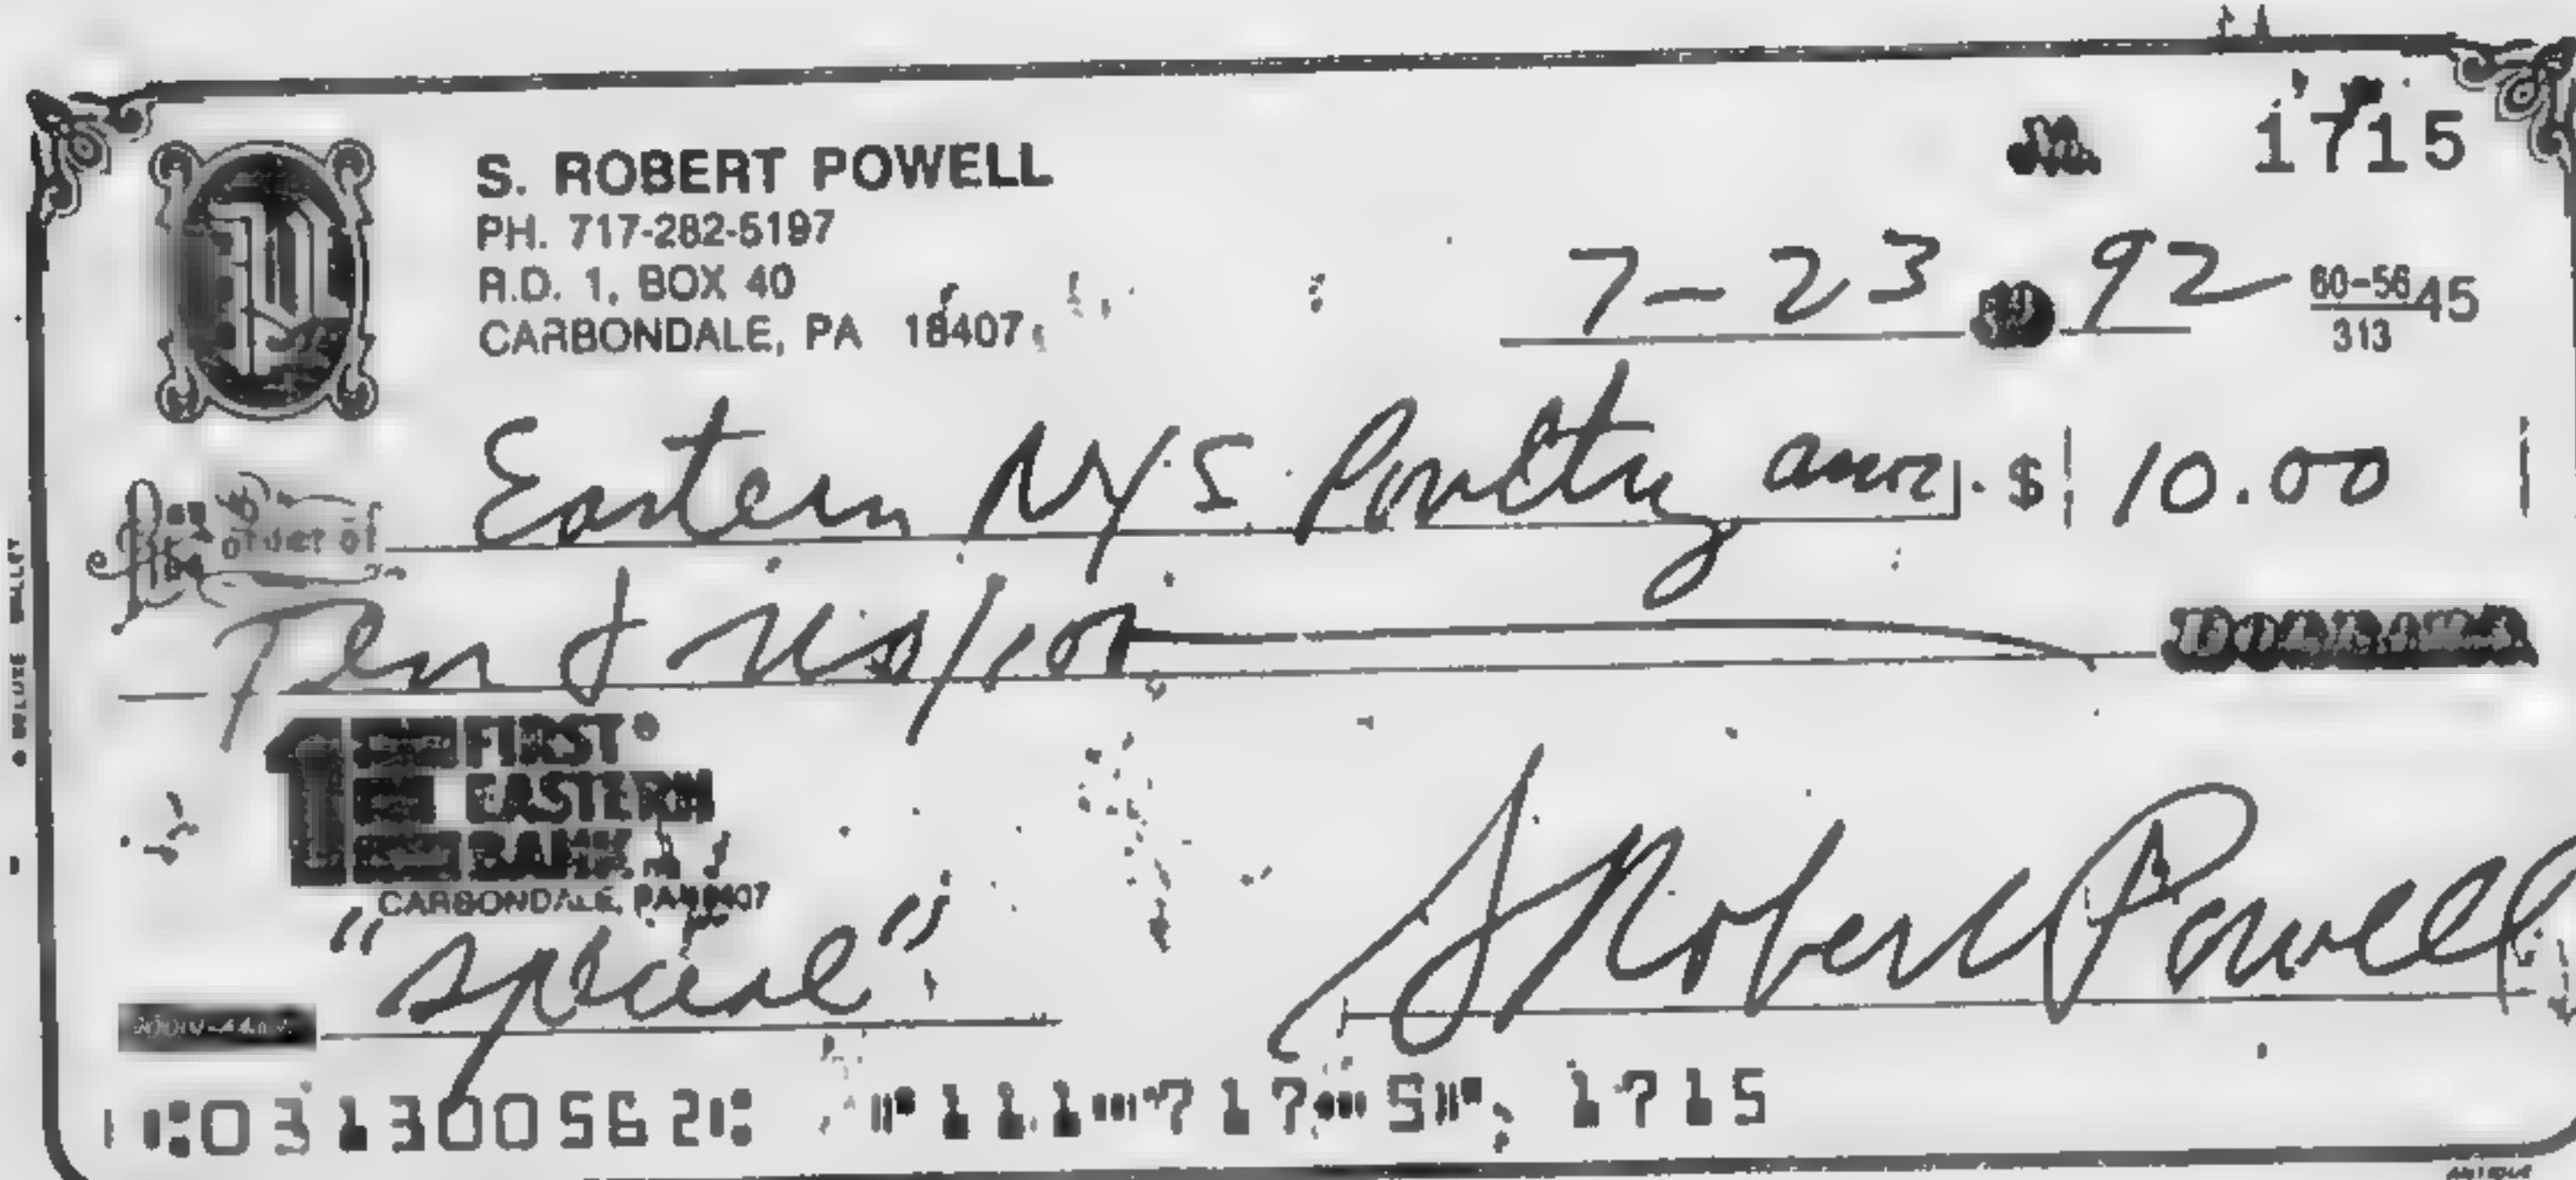 1715
S. ROBERT POWELL
PH. 717-282-5197
R.D. 1, BOX 40
CARBONDALE, PA 18407
7-23 92 60-56 45
313
Pay to the order of Eastern NYS Poultry $ 10.00
Ten & no/100 DOLLARS
1 FIRST
EASTERN
BANK
CARBONDALE, PA 18407
"special"
S Robert Powell
⑆031300562⑆ ⑈111⑉717⑉5⑈ 1715